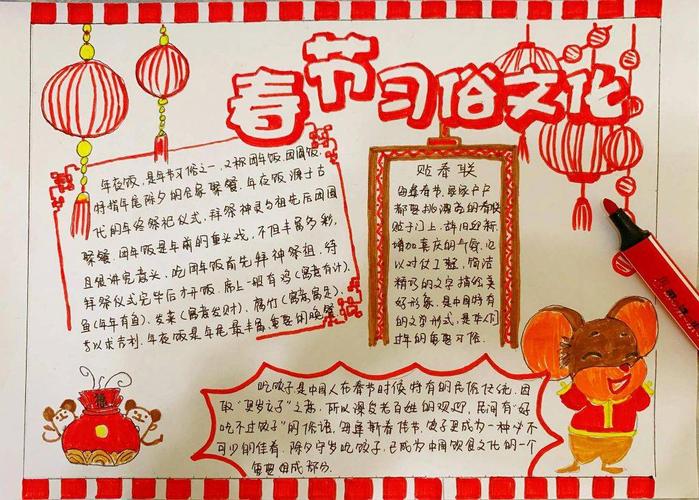 春节习俗文化
年夜饭,是年节习俗之一,又称团年饭,团圆饭,
特指年尾除夕的合家聚餐,年夜饭源于古
代的年终祭祀仪式,拜祭神灵与祖先后团圆
聚餐。团年饭是年前的重头戏,不但丰富多彩,
且很讲究意头。吃团年饭前先拜神祭祖,待
拜祭仪式完毕后才开饭。席上一般有鸡(寓意有计)、
鱼(年年有鱼)、发菜(寓意发财)、腐竹(寓意富足)、
等以求吉利。年夜饭是年尾最丰盛、重要的晚餐。
贴春联
每年春节,家家户户
都要挑漂亮的春联
贴于门上,辞旧迎新,
增加喜庆的气氛,它
以对仗工整,简洁
精巧的文字描绘美
好形象,是中国特有
的文学形式,是华人们
过年的重要习俗。
吃饺子是中国人在春节时候特有的民俗传统,因
取“更岁交子”之意,所以深受老百姓的欢迎,民间有“好
吃不过饺子”的俗语,每年新春佳节,饺子更成为一种必不
可少的佳肴,除夕守岁吃饺子,已成为中国饮食文化的一个
重要组成部分。
福